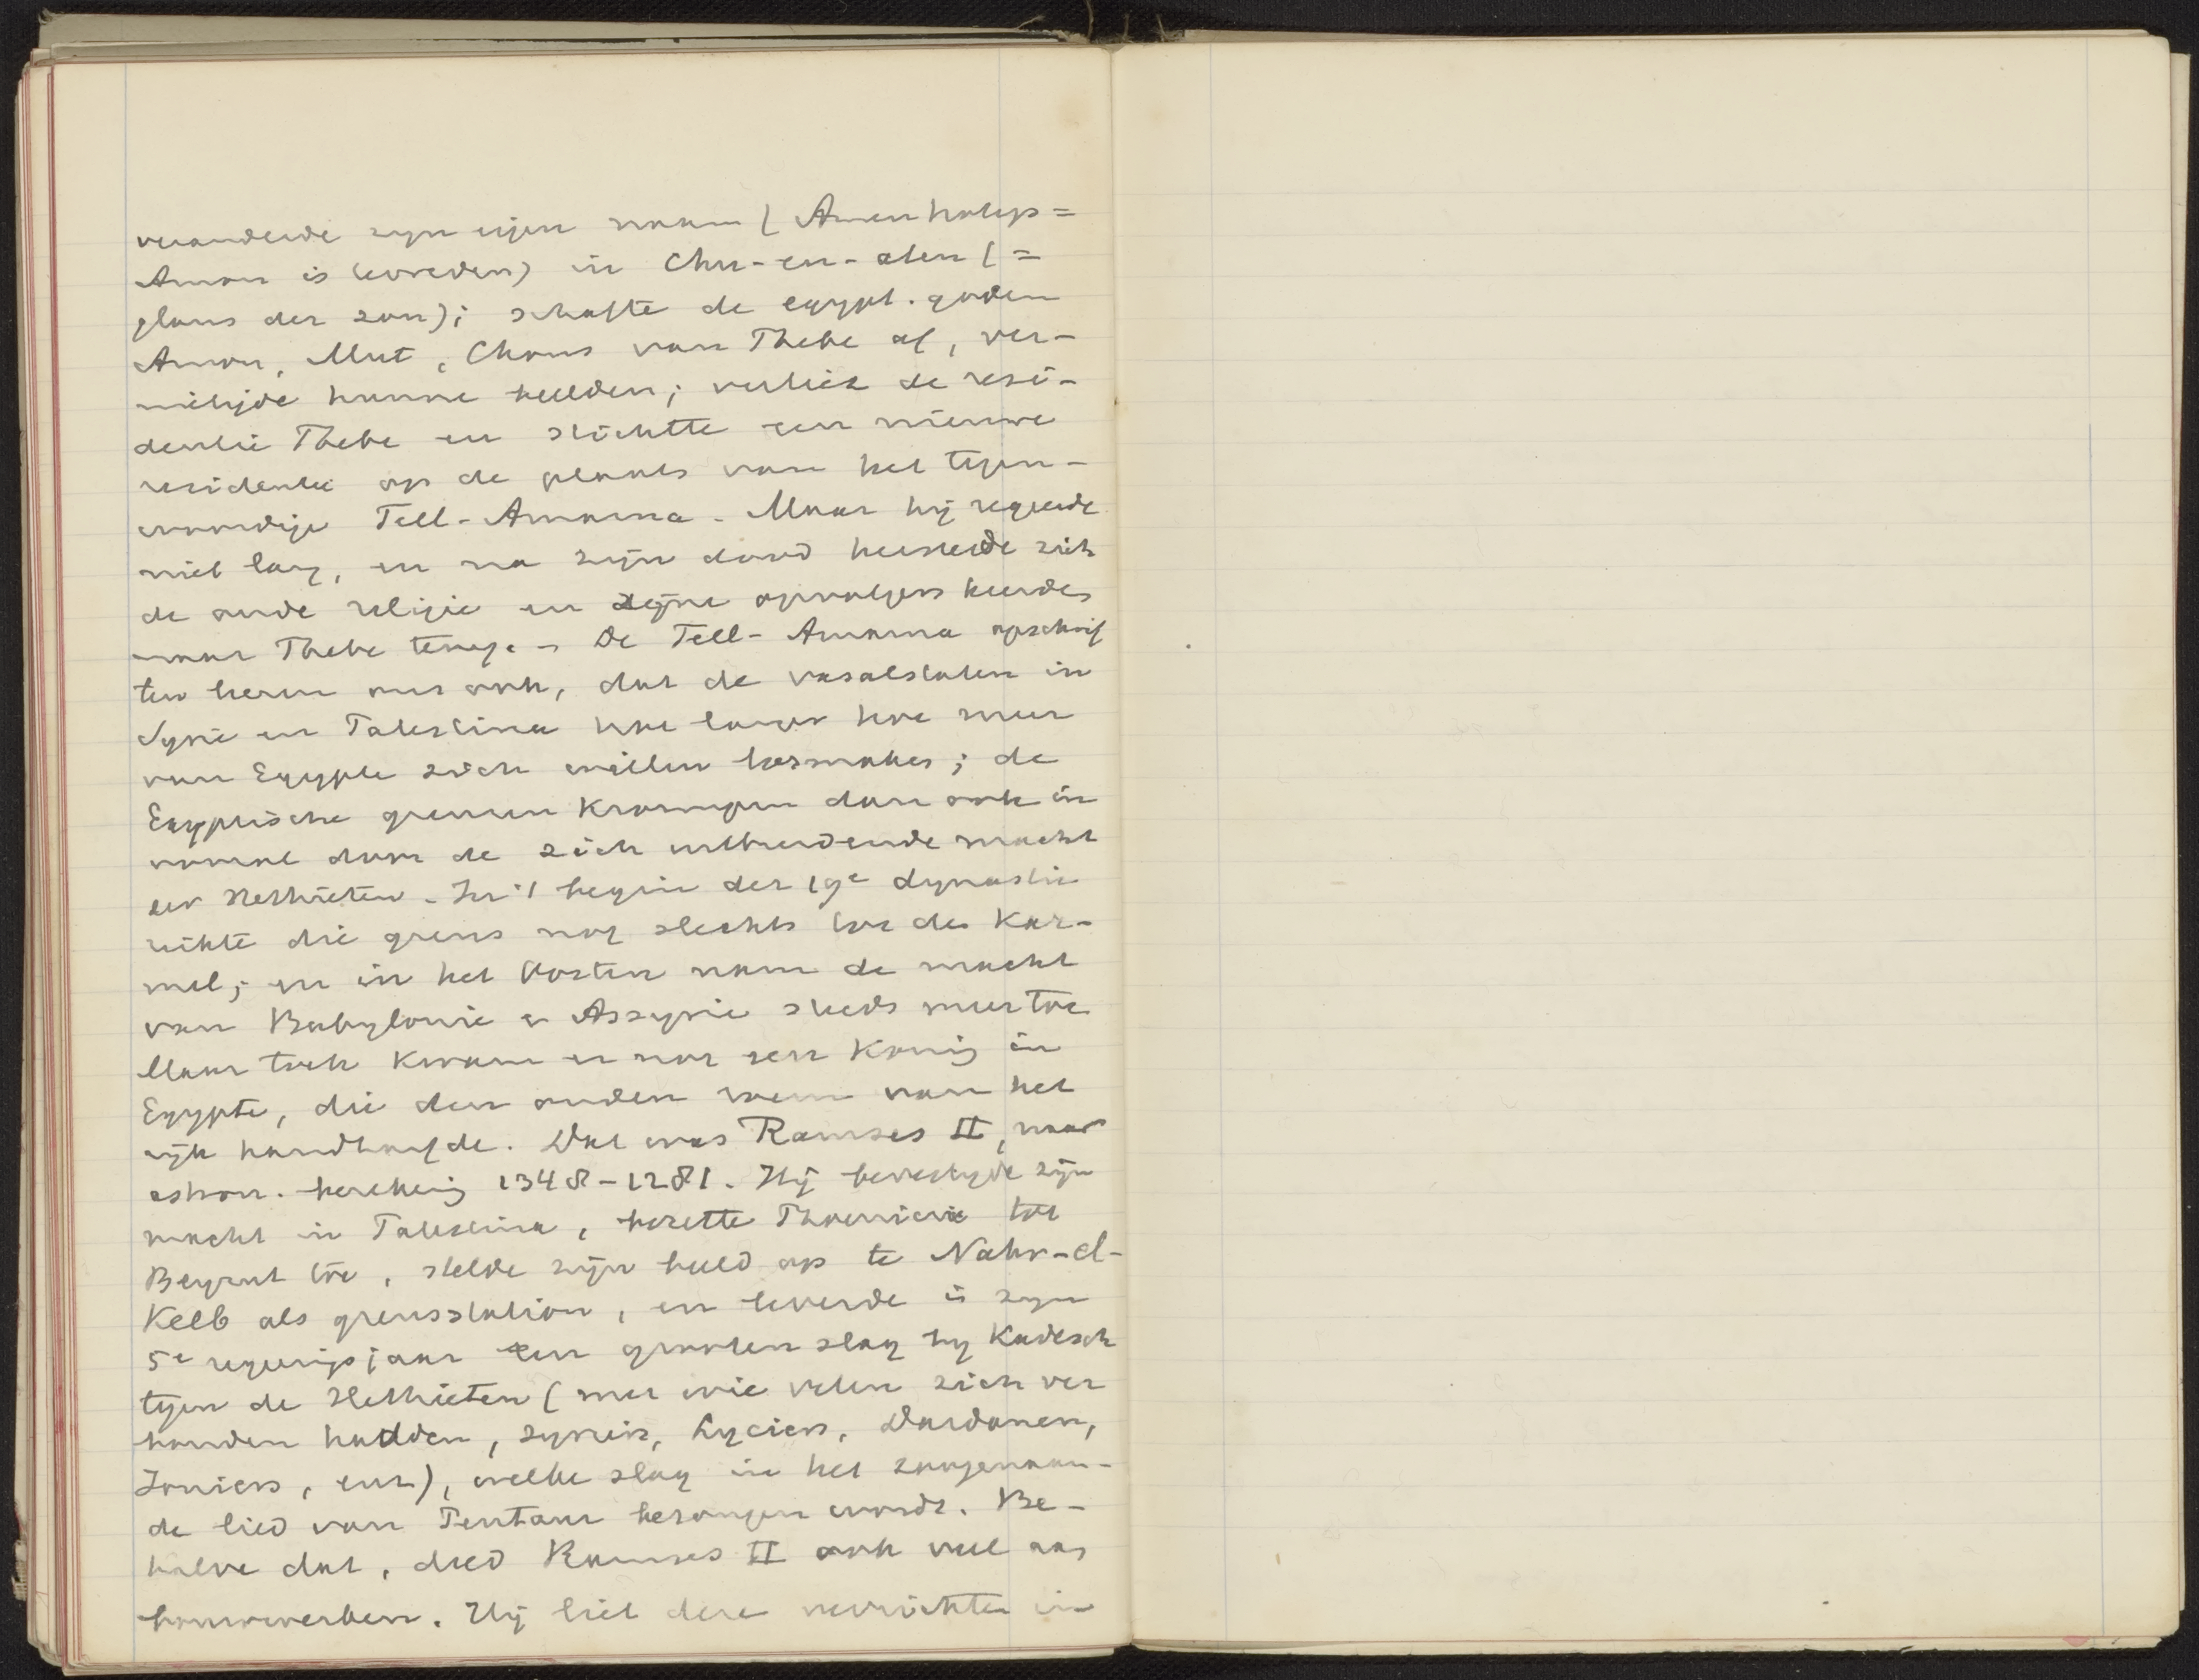 veranderde zyn eigen naam (Amenhotep =
Amon is tevreden) in Chu-en-aten (=
glans der zon); schafte de egypt. goden
Amon, Mut, Chons van Thebe af, ver-
nietigde hunne beelden; verliet de resi-
dentie Thebe en stichtte een nieuwe
residentie op de plaats van het tegen-
woordige Tell-Amarna. Maar hij regeerde
niet lang, en na zijn dood herstelde zich
de oude religie en zijne opvolgers keerden
naar Thebe terug. - De Tell-Amarna opschrif
ten leeren ons ook, dat de vasalstaten in
Syrie en Palestina hoe langer hoe meer
van Egypte zich willen losmaken; de
Egyptische grenzen krompen dan ook in
vooral door de zich uitbreidende macht
der Hethieten. In 't begin der 19e dynastie
reikte die grens nog slechts tot den Kar-
mel; en in het Oosten nam de macht
van Babylonie en Assyrie steeds meer toe
Maar toch kwam er nog een Koning in
Egypte, die den ouden roem van het
rijk handhaafde. Dat was Ramses II, naar
astron. berekening 1348-1281. Hij bevestigde zijn
macht in Palestina, bezette Phoenicie tot
Beyrut toe, stelde zijn beeld op te Nahr-el-
Kelb als grensstation, en leverde in zyn
5e regeeringsjaar een grooten slag by Kadesch
tegen de Hethieten (met wie velen zich ver
bonden hadden, Syriers, Lyciers, Dardanen,
Ioniers, enz), welke slag in het zoogenaam-
de lied van Pentaur bezongen wordt. Be-
halve dat, deed Ramses II ook veel aan
bouwwerken. Hij liet deze verrichten in